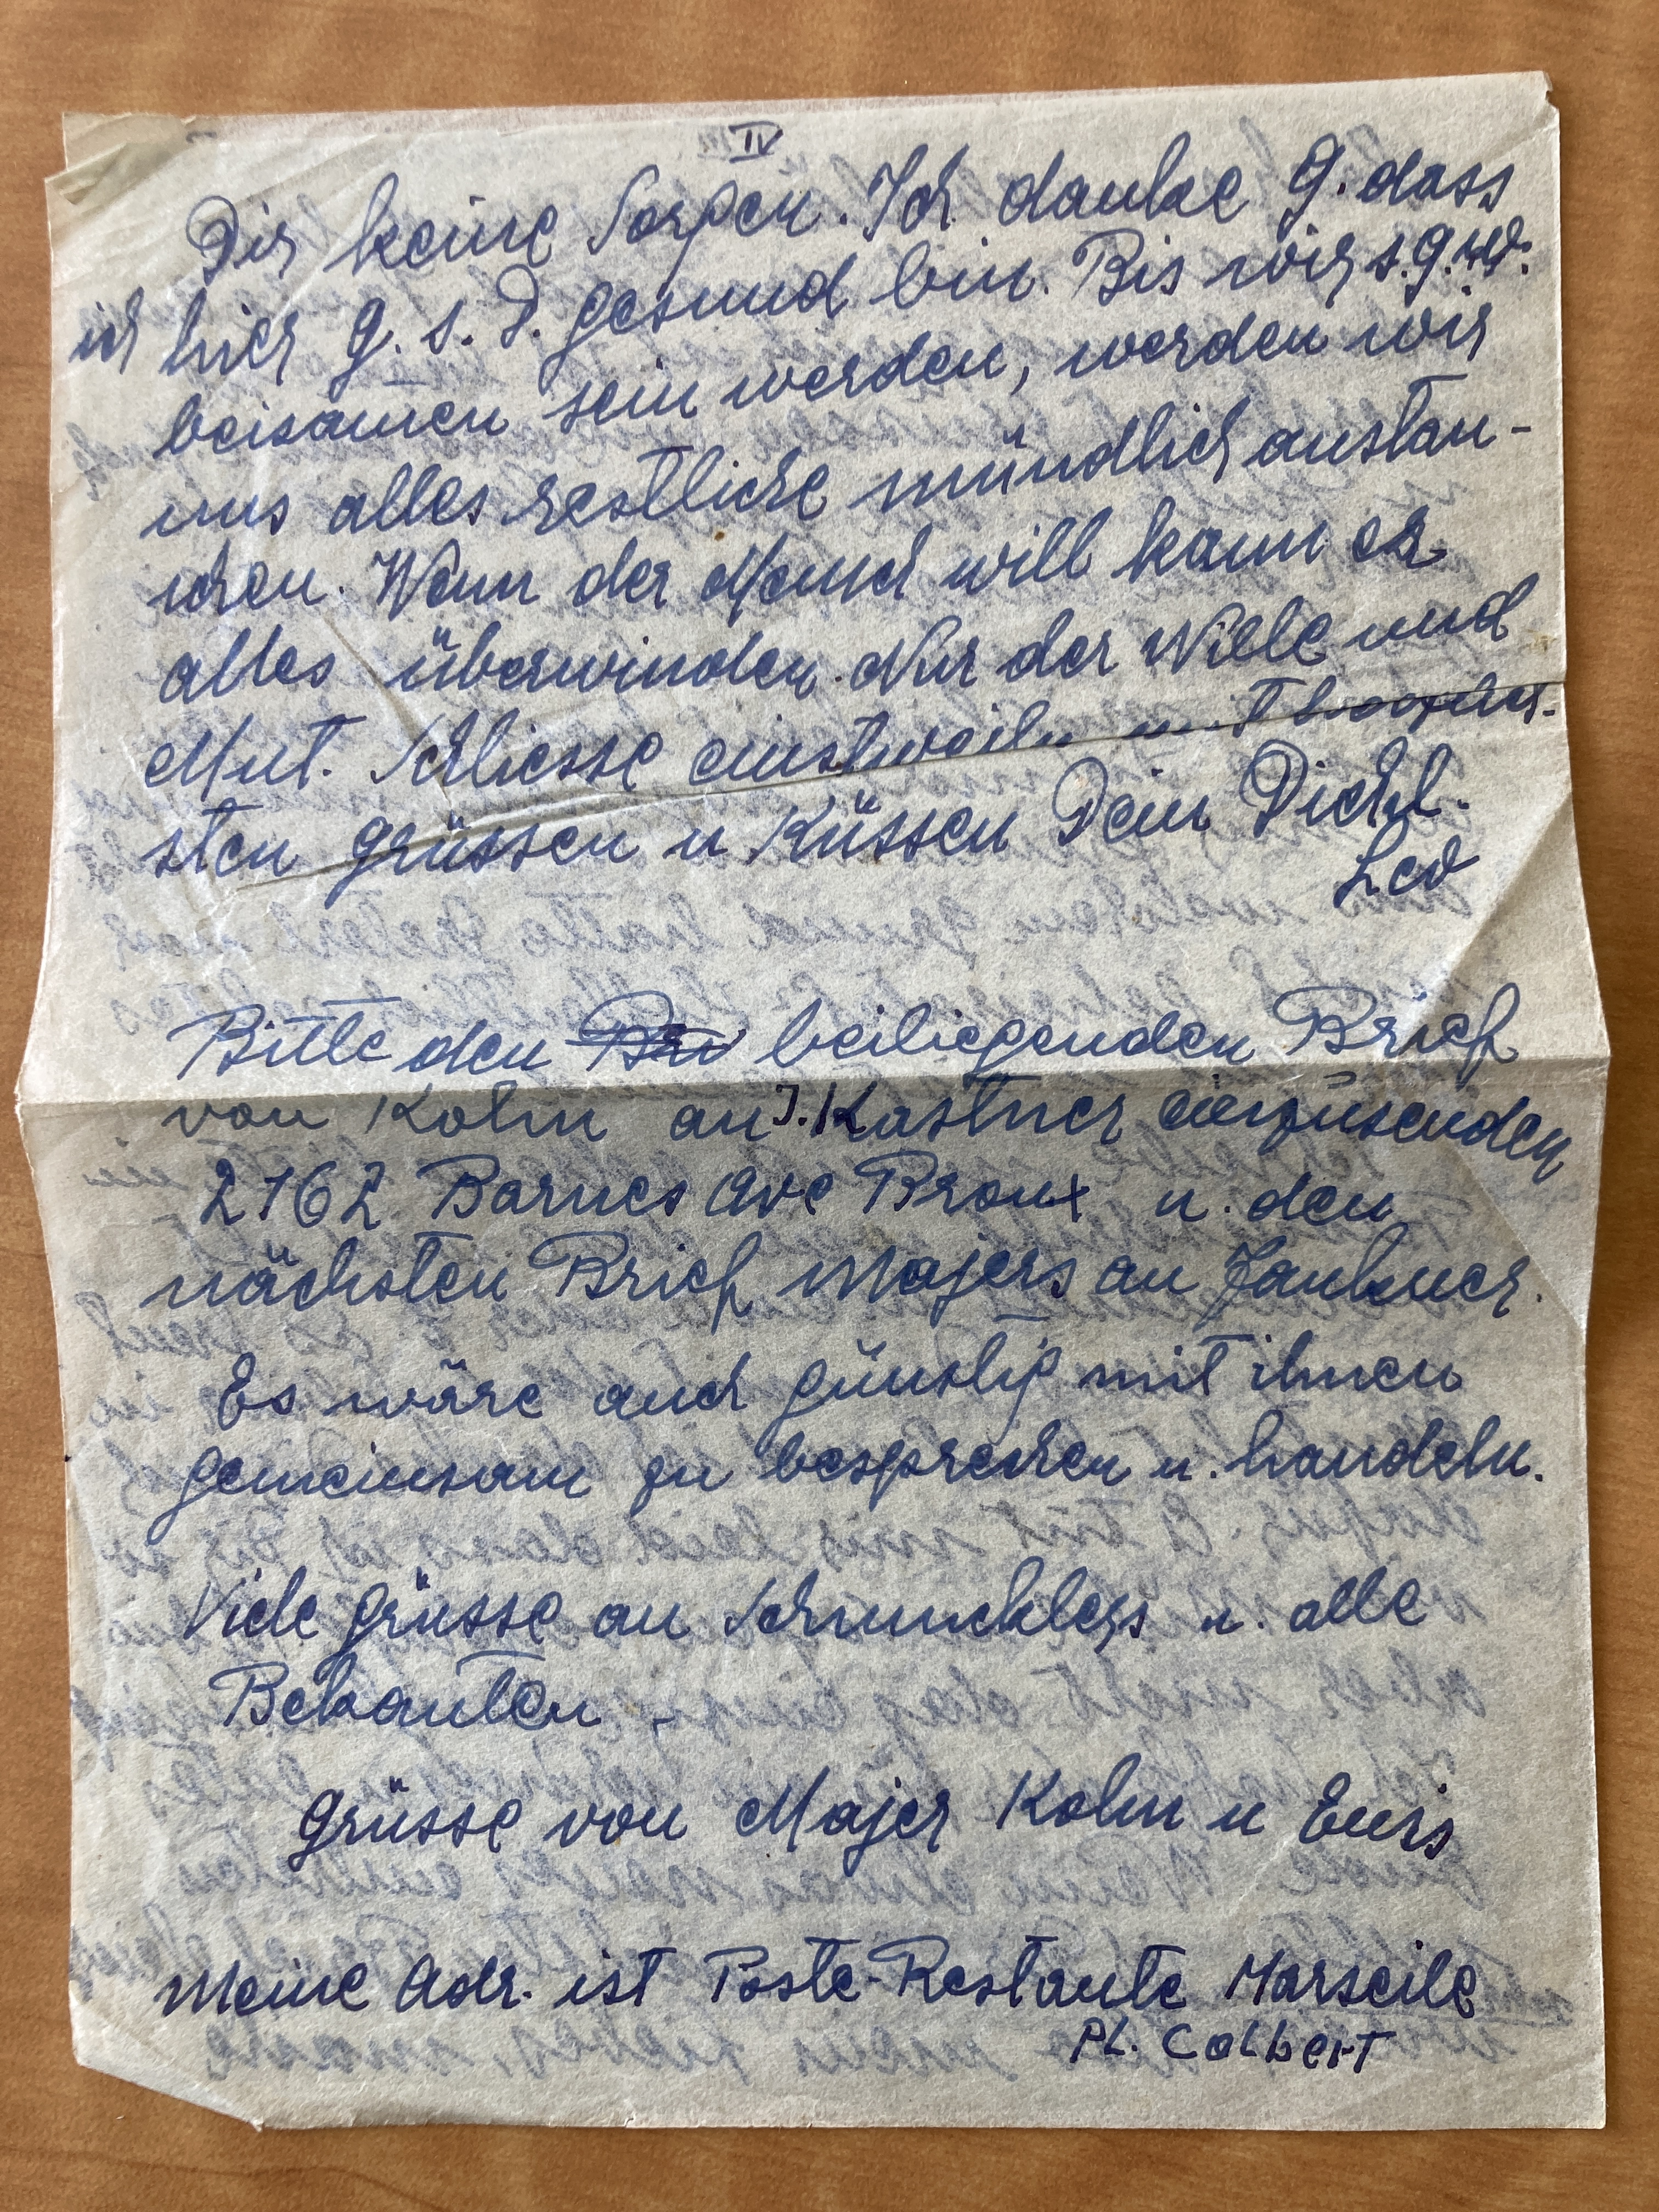 IV
Dir keine Sorgen. Ich danke G. dass
ich hier G. s. D. gesund bin. Bis wir s.g.w.
beisamen sein werden, werden wir
uns alles restliche mündlich austau-
schen. Wenn der Mensch will kann er
alles überwinden. Nur der Wille und
Mut. Schliesse einstweiln mit
sten grüssen u Küssen Dein Dichl.
Leo
Bitte den beiliegenden Brief
von Kohn an J. Kastner
2162 Barnes Ave Bronx u. den
nächsten Brief Majers an
Es wäre auch günstig mit ihnen
gemeinsam zu besprechen u. handeln.
Viele grüsse an u. alle
Bekanten -
grüsse von Majer Kohn u
Meine Adr. ist Poste-Restante Marseile
PL. Colbert